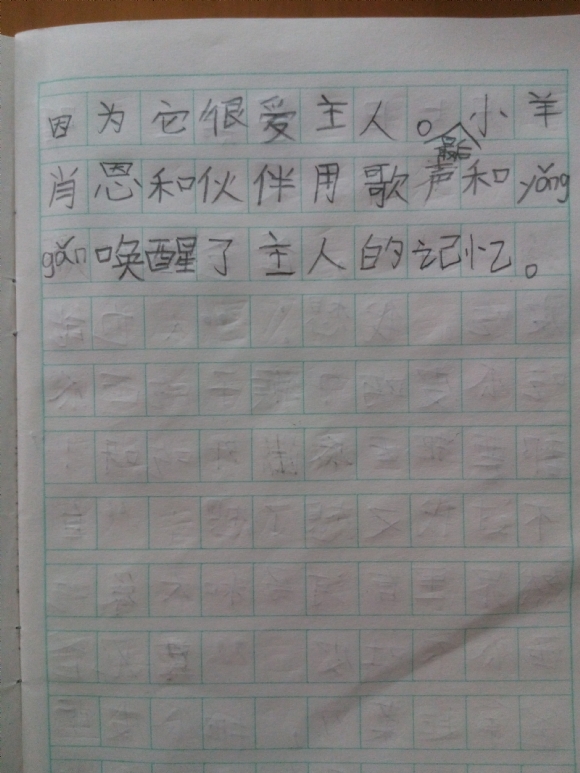 因为它很爱主人。最后小羊
肖恩和伙伴用歌声和yǒng
gǎn唤醒了主人的记忆。